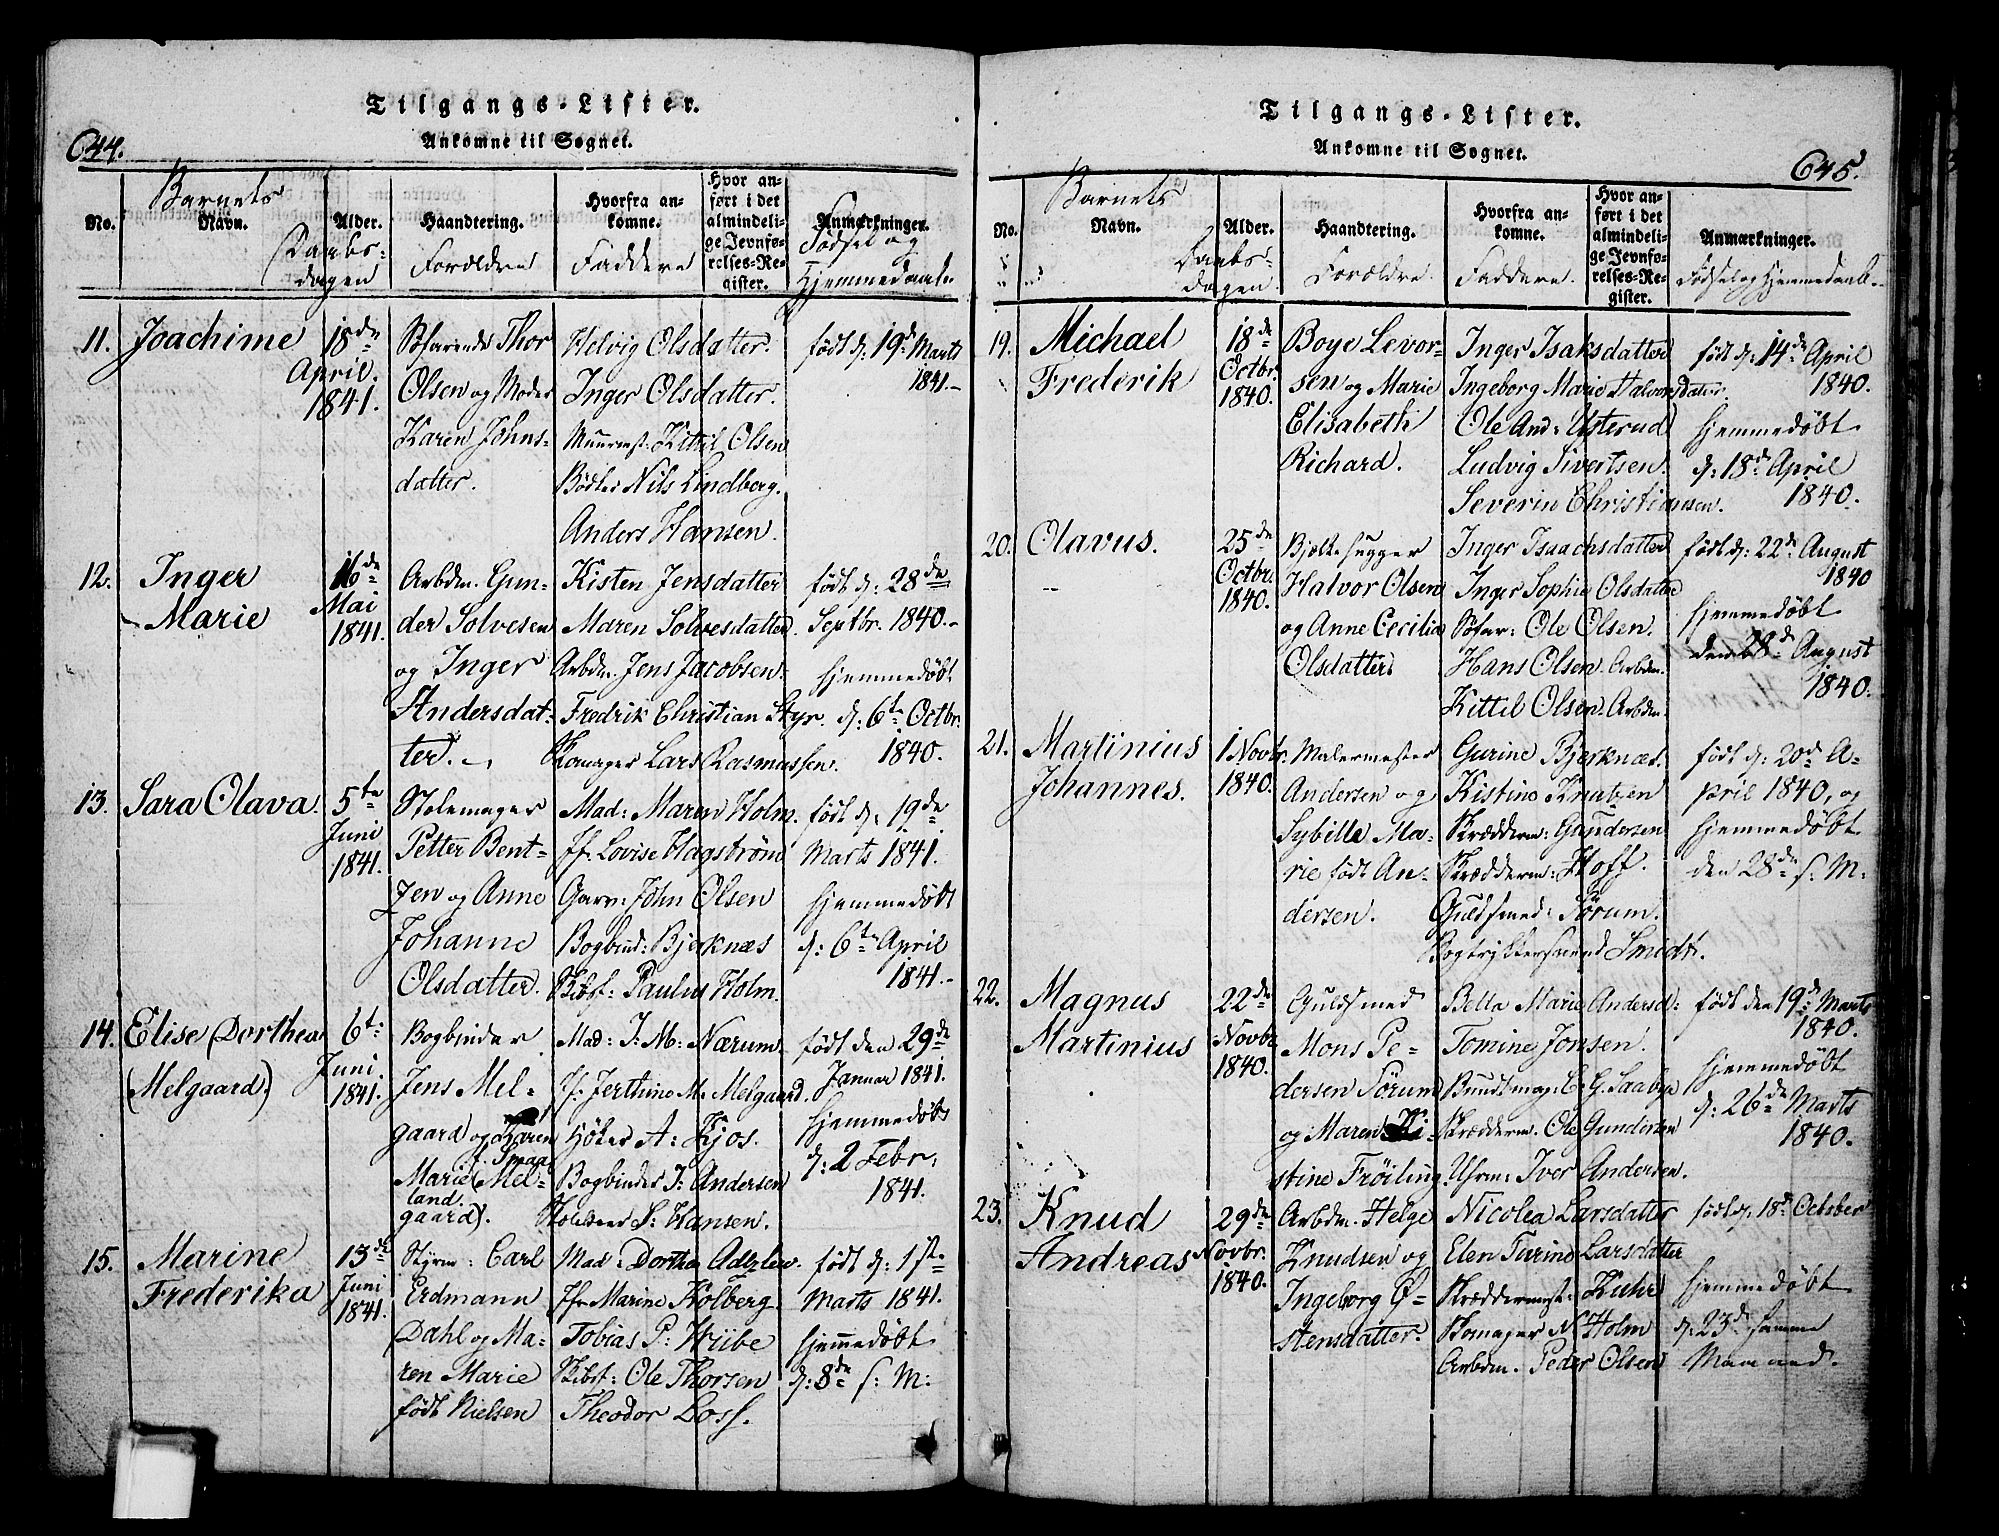 644.
Tilgangs-Lister.
Ankomne til Sognet.
No.
Barnets
Navn.
Daabs-
dagen
Alder.
Haandtering.
Forældre
Hvorfra an-
komne.
Faddere
Hvor an-
ført i det
almindeli-
ge Jevnfø-
relses-Re-
gister.
Anmærkninger.
Fødsel og
Hjemmedaab.
11. Joachime
18de
April.
1841.
Søfarende Thor
Olsen og Moder
Karen Johns-
datter.
Helvig Olsdatter.
Inger Olsdatter.
Muurmst: Kittil Olsen
Bødker Nils Lindberg.
Anders Hansen.
født d: 19de Marts
1841.-
12. Inger
Marie
16de
Mai
1841.
Arbdm. Gun-
der Solvesen
og Inger
Andersdat-
ter.
Kisten Jensdatter
Maren Solvesdatter.
Arbdm. Jens Jacobsen.
Fredrik Christian Styr.
Skomager Lars Rasmussen.
født d: 28de
Septbr. 1840.-
hjemmedøbt
d: 6te Octbr.
1840.
13. Sara Olava.
5te
Juni
1841.
Stolemager
Petter Bent-
zen og Anne
Johanne
Olsdatter.
Mad: Maren Holm.
Jfr: Lovise Hagstrøm
Garv: John Olsen
Bogbind: Bjerknæs
Skibsf: Paulus Holm.
født d: 19de
Marts 1841.
hjemmedøbt
d: 6te April
1841.-
14. Elise Dorthea
(Melgaard)
6te
Juni.
1841.
Bogbinder
Jens Mel-
gaard og Karen
Smaa
Marie (Mel-
land.
gaard).
Mad: J: M: Nærum.
Jf: Jerthine M. Melgaard.
Høker A: Kjos.
Bogbinder J: Andersen
S: Hansen.
født den 29de
Januar 1841.
hjemmedøbt
d: 2 Febr:
1841.
15. Marine
Frederika
13de
Juni
1841.
Styrm: Carl
Erdmann
Dahl og Ma-
ren Marie
født Nielsen
Mad: Dorthea Adzlew.
Jfr Marine Kolberg
Tobias P: Wiibe
Skibst: Ole Thorsen
Theodor Loss.
født d: 1ste
Marts 1841.
hjemmedøbt
d: 8de s: M:
645.
Tilgangs-Lister.
Ankomne til Sognet.
No.
Barnets
Navn.
Daabs-
dagen.
Alder.
Haandtering.
Forældre.
Hvorfra an-
komne.
Faddere.
Hvor an-
ført i det
almindeli-
ge Jevnfø-
relses-Re-
gister.
Anmærkninger.
Fødsel og Hjemmedaab.
19. Michael
Frederik
18de
Octbr.
1840.
Boye Levor-
sen og Marie
Elisabeth
Richard.
Inger Isaksdatter
Ingeborg Marie Halvorsdatter.
Ole And: Usterud
Ludvig Sivertsen.
Severin Christiansen.
født d: 14de April
1840.
hjemmedøbt
d: 18de April
1840.
20. Olavus.
25de
Octbr.
1840.
Bjelkehugger
Halvor Olsen
og Anne Cecilia
Olsdatter.
Inger Isaachsdatter
Inger Sophie Olsdatter
Søfar: Ole Olsen.
Hans Olsen. Arbdm.
Kittil Olsen. Arbdm.
født d: 22de August
1840
hjemmedøbt
den 28de August
1840.
21. Martinius
Johannes.
1 Novbr.
1840.
Malermester
Andersen og
Sybille Ma-
rie født An-
dersen.
Gurine Bjerknæs.
Kistine Knutzen
Skrædderm: Gundersen
Skrædderm: Hoff.
Guldsmed: Sørum.
Bogtrykkersvend Smidt.
født d: 20de A-
pril 1840, og
hjemmedøbt
den 28de s: M:
22. Magnus
Martinius
22de
Novbr
1840.
Guldsmed
Mons Pe-
dersen Sørum
og Maren Ki-
stine Frøiling.
Bella Marie Andersd:
Tomine Jonsen.
Bundtmag: C: G. Saabye
Skrædderm. Ole Gundersen
Uhrm: Iver Andersen.
født den 19de Marts
1840.
hjemmedøbt
d: 26de Marts
1840.
23. Knud
Andreas
29de
Novbr.
1840.
Arbdm. Helge
Knudsen og
Ingeborg Ø-
stensdatter.
Nicolea Larsdatter
Elen Turine Larsdatter
Skræddermest: Kuhr
Skomager N Holm
Arbdm. Peder Olsen
født d. 18de October
hjemmedøbt
d: 23de samme
Maaned.